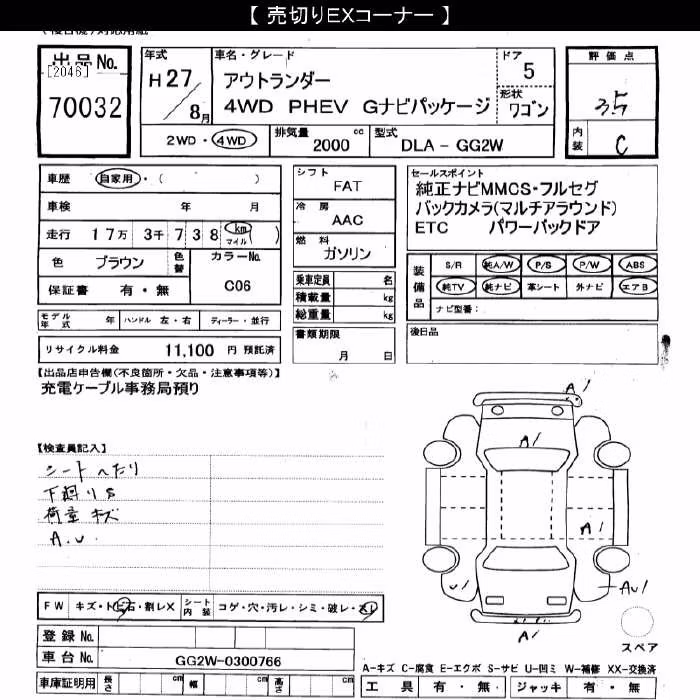 【 売切りEXコーナー 】
出品No.
[2046]
70032
年式
H27/8月
車名・グレード
アウトランダー
4WD PHEV Gナビパッケージ
ドア
5
形状
ワゴン
評価点
3.5
内装
C
2WD・4WD
排気量
2000 cc
型式
DLA - GG2W
車歴 自家用・( )
車検 年 月
走行 17万 3千 738 km マイル ( )
色 ブラウン 色替
カラーNo.
C06
保証書 有・無
シフト
FAT
冷房
AAC
燃料
ガソリン
乗車定員 名
積載量 kg
総重量 kg
セールスポイント
純正ナビMMCS・フルセグ
バックカメラ(マルチアラウンド)
ETC パワーバックドア
装備品
S/R 純A/W P/S P/W ABS
純TV 純ナビ 革シート 外ナビ エアB
ナビ型番:
モデル年式 年 ハンドル 左・右 ディーラー・並行
書類期限
月 日
後日品
リサイクル料金 11,100 円 預託済
【出品店申告欄(不良箇所・欠品・注意事項等)】
充電ケーブル事務局預り
【検査員記入】
シートへたり
下廻りS
荷室キズ
A.U.
FW キズ・トビ石・割レX シート内装 コゲ・穴・汚レ・シミ・破レ・スレ
A1
A1
A1
U1
AU1
A1
スペア
登録No.
車台No. GG2W-0300766
車庫証明用 長さ cm 幅 cm 高さ cm
A-キズ C-腐食 E-エクボ S-サビ U-凹ミ W-補修 XX-交換済
工具 有・無 ジャッキ 有・無